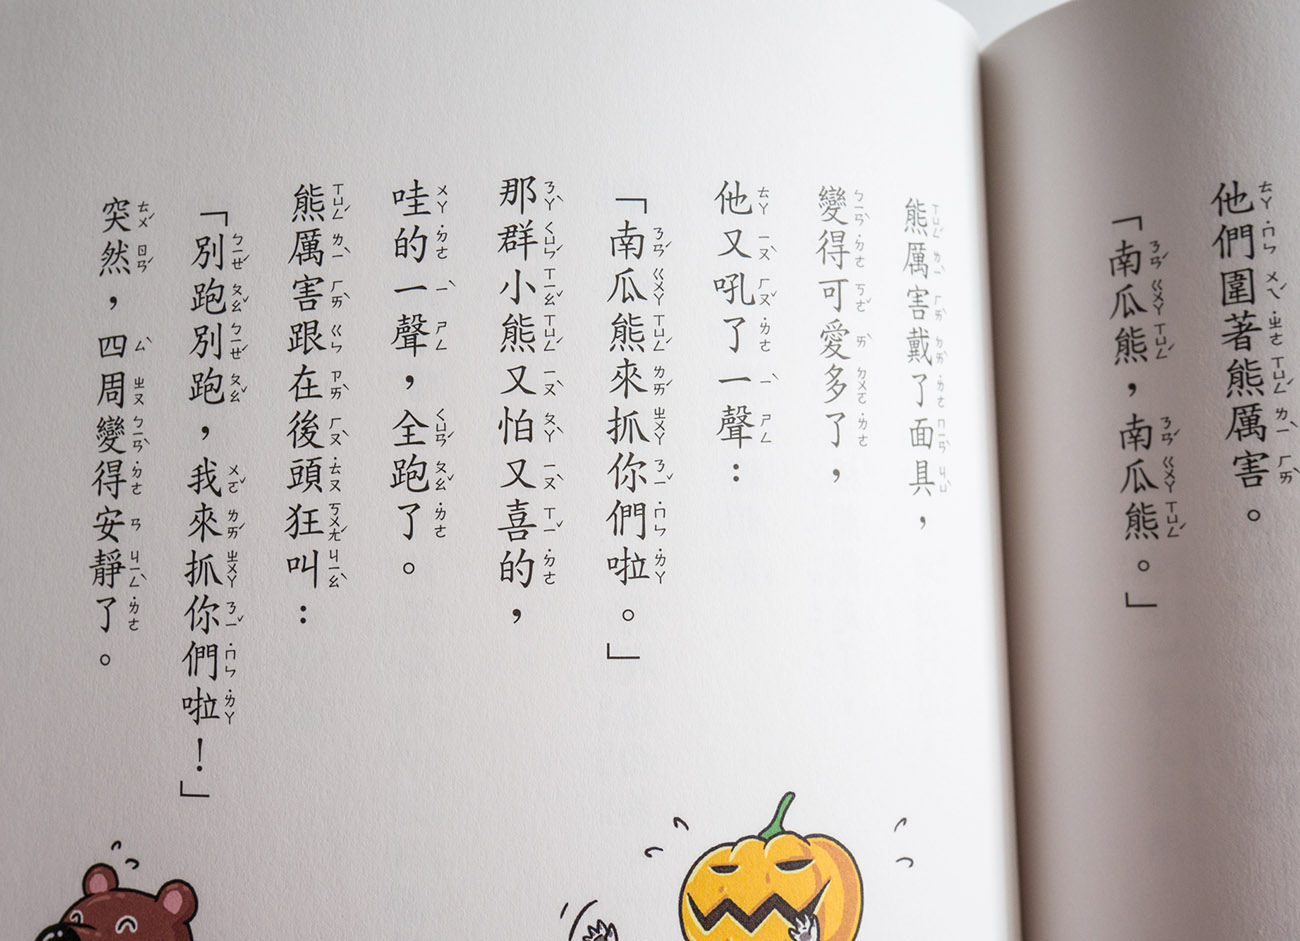 他們圍著熊厲害。
「南瓜熊,南瓜熊。」
熊厲害戴了面具,
變得可愛多了,
他又吼了一聲:
「南瓜熊來抓你們啦。」
那群小熊又怕又喜的,
哇的一聲,全跑了。
熊厲害跟在後頭狂叫:
「別跑別跑,我來抓你們啦!」
突然,四周變得安靜了。